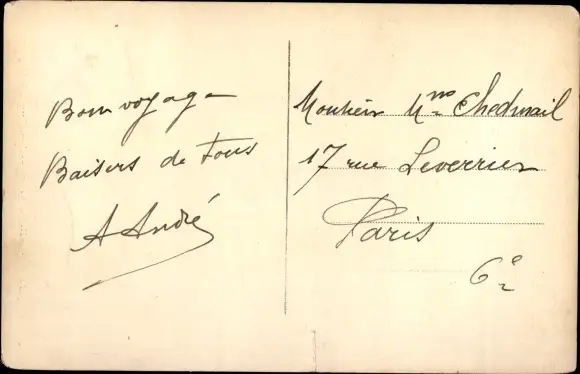 Bon voyage
Baisers de Tous
A André
Monsieur Mme Chedmail
17 rue Leverrier
Paris
6e